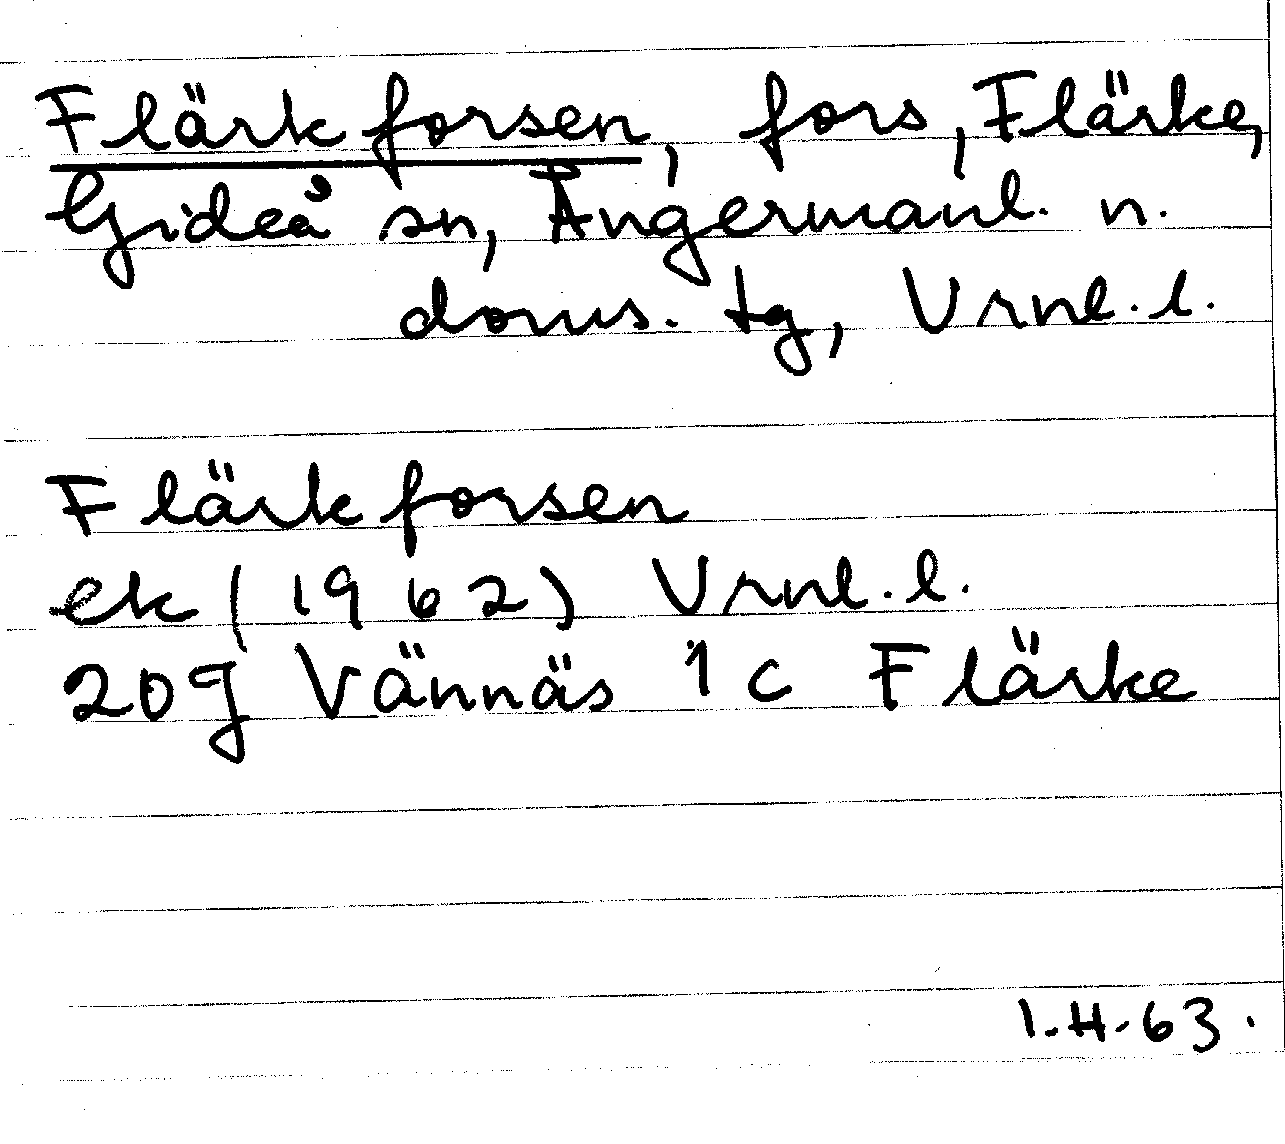 Flärkforsen, fors, Flärke,
Gideå sn, Ångermanl. n.
doms. tg, Vrnl. l.
Flärkforsen
ek (1962) Vrnl. l.
20g Vännäs 1c Flärke
1.H.63.